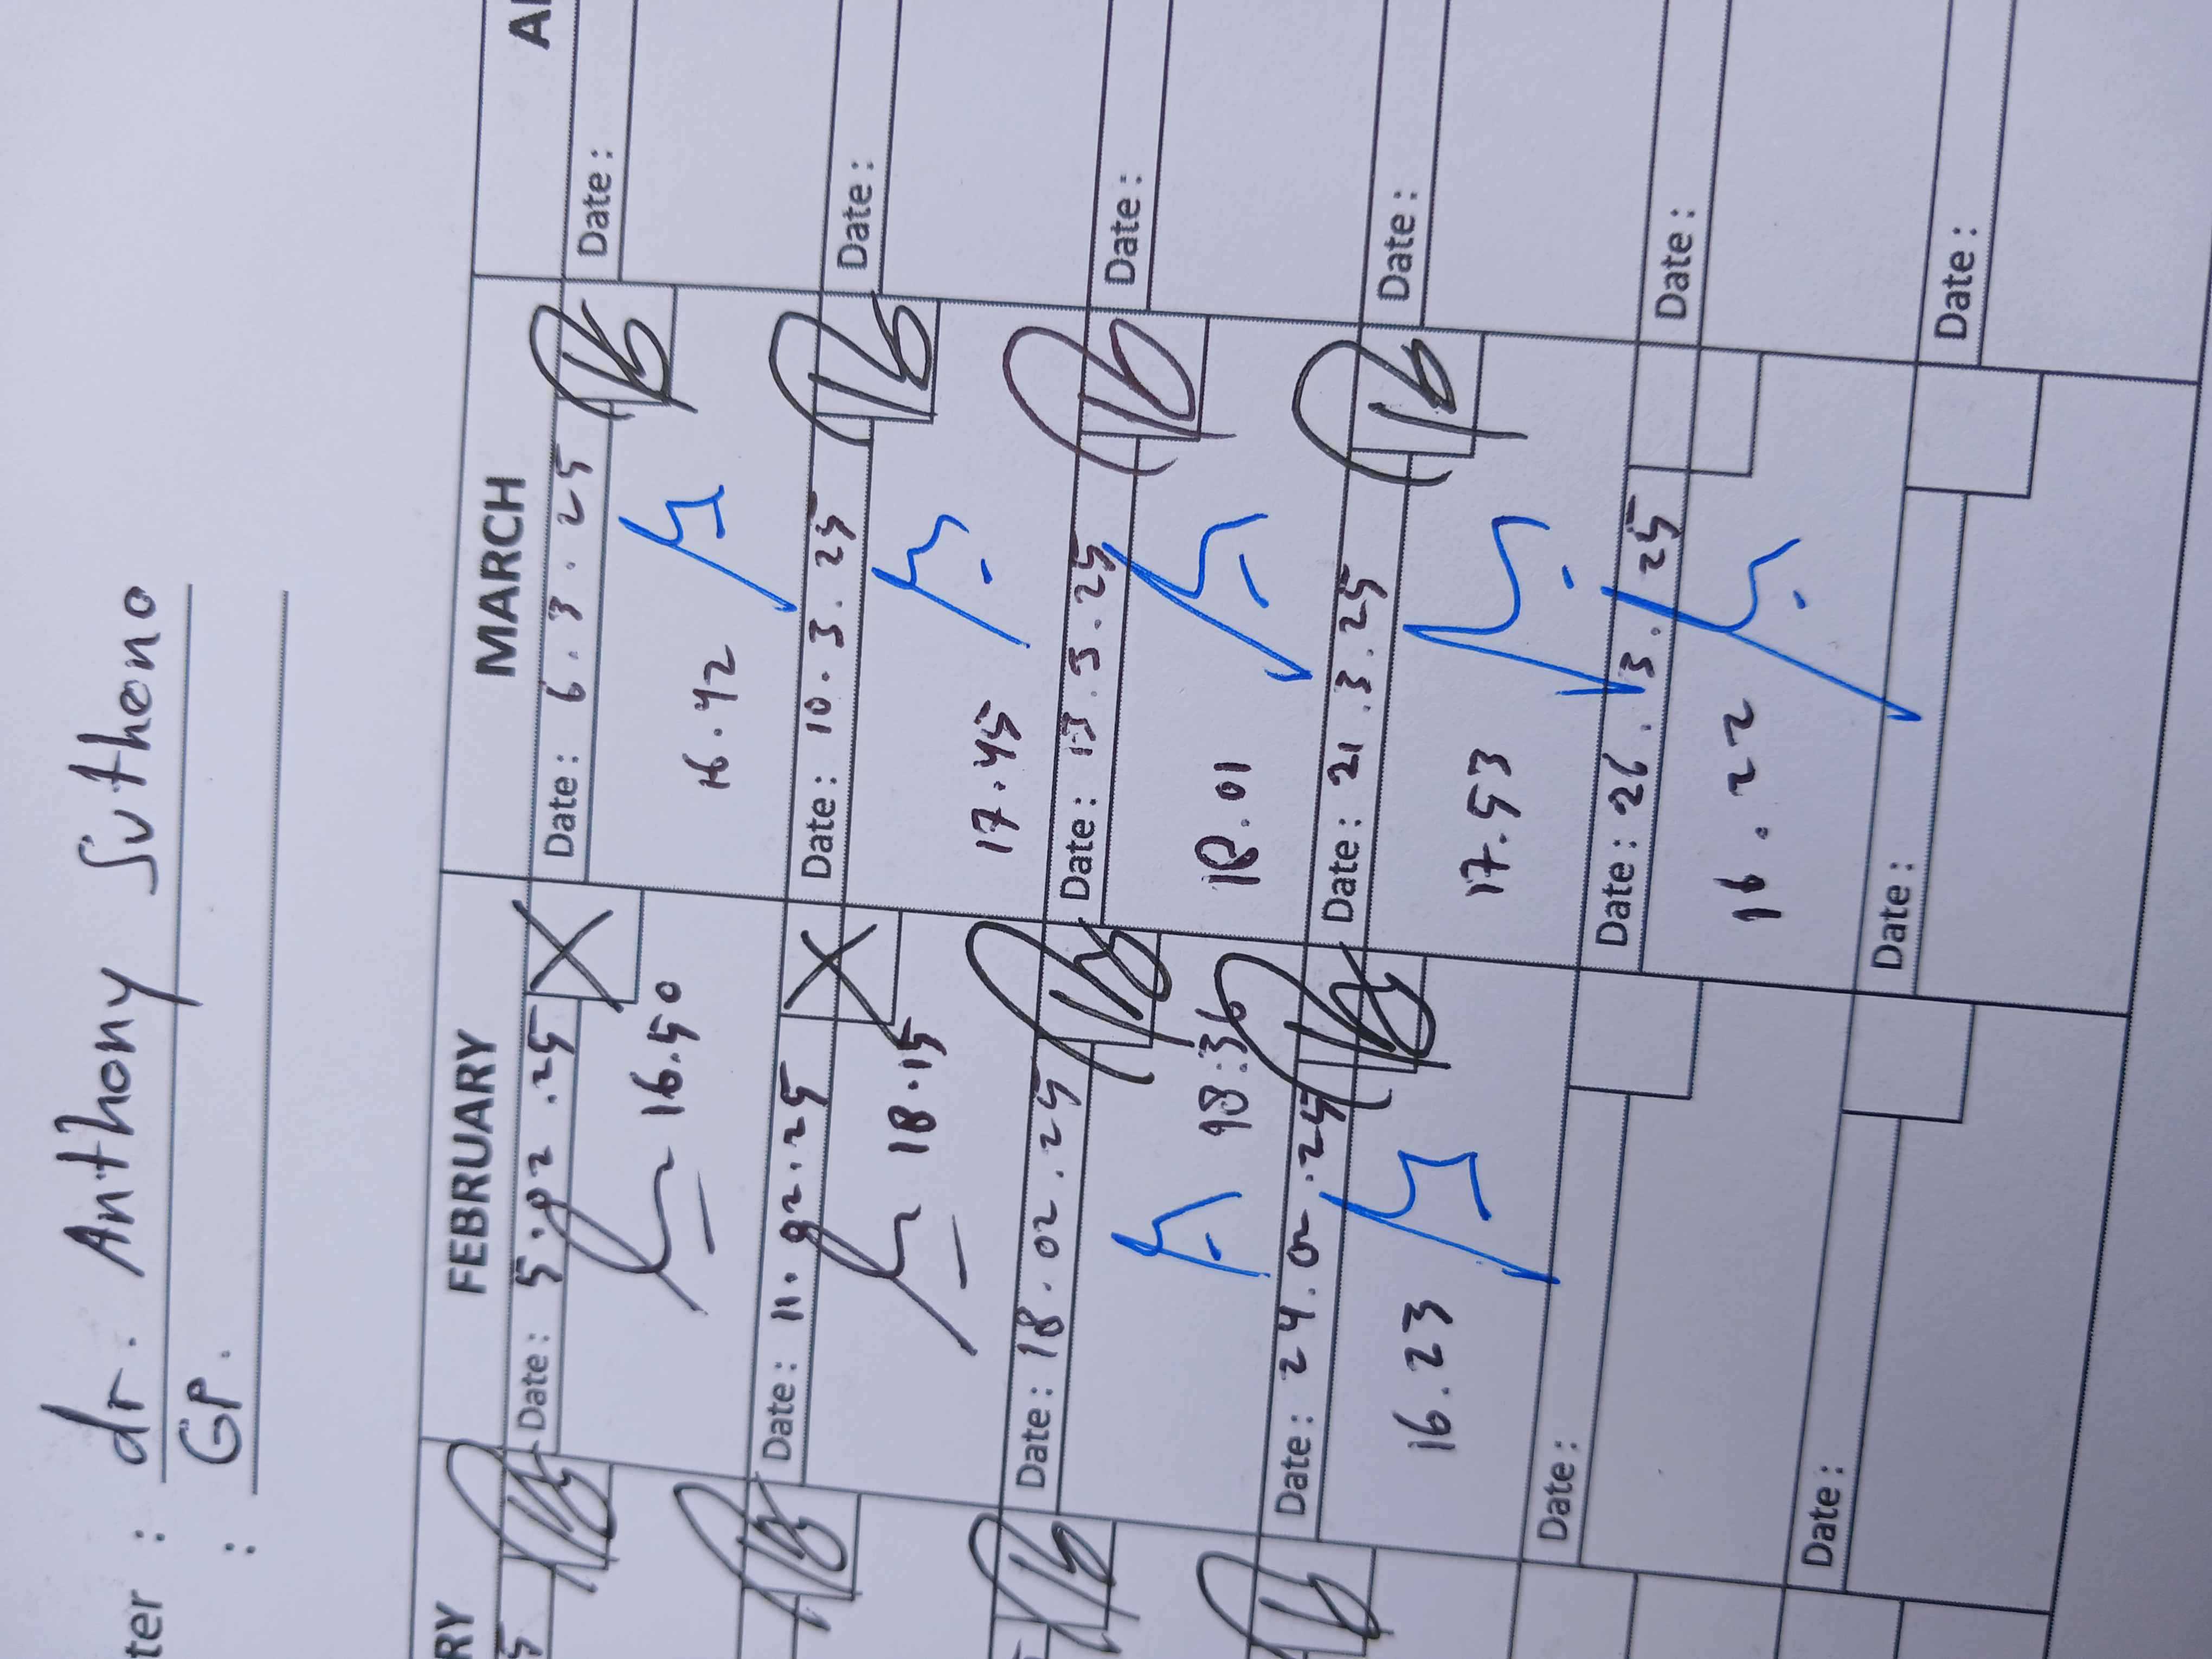 ter : dr. Anthony Sutheno
: GP.
RY FEBRUARY MARCH
5 Date: 5.02.25 Date: 6.3.25 Date:
16.50 16.42
Date: 11.02.25 Date: 10.3.25 Date:
18.15 17.45
Date: 18.02.25 Date: 13.3.25 Date:
18:36 18.01
Date: 24.02.25 Date: 21.3.25 Date:
16.23 17.53
Date: Date: 26.3.25 Date:
16.22
Date: Date: Date: